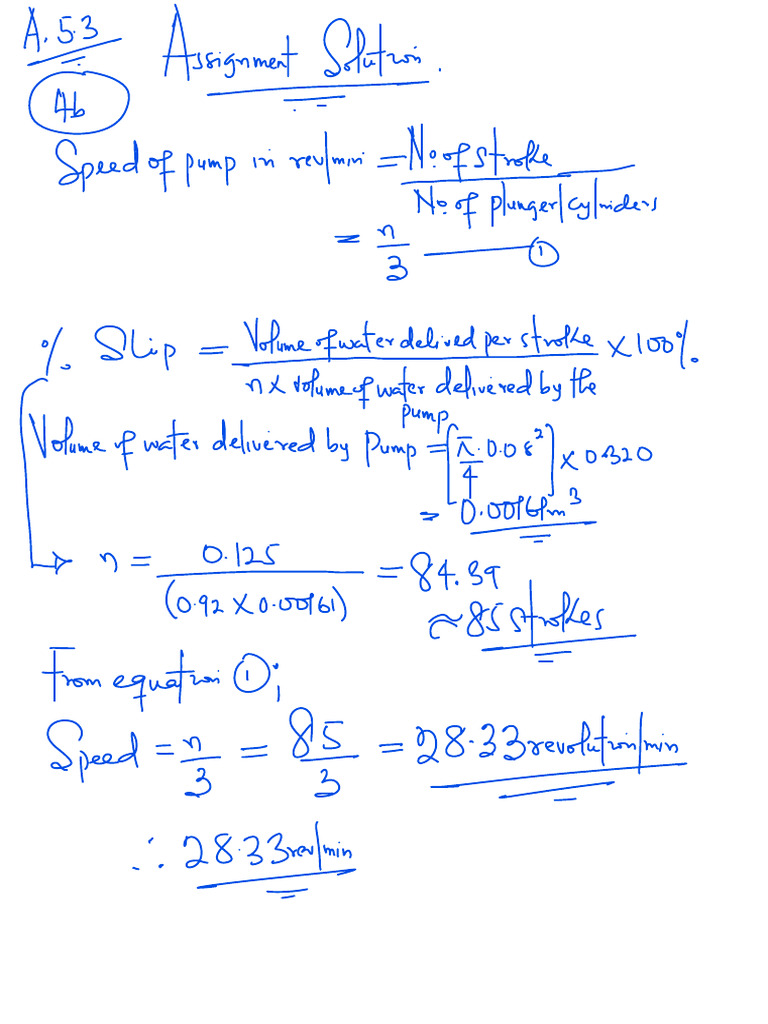 A.5.3
Assignment Solution.
4b
Speed of pump in rev/min = No of stroke / No of plunger/cylinders
= n/3 —— ①
% Slip = Volume of water delived per stroke / n x volume of water delivered by the pump × 100%.
Volume of water delivered by Pump = [π/4 . 0.08²] x 0.320
= 0.00161m³
n = 0.125 / (0.92 x 0.00161) = 84.39
≈ 85 strokes
From equation ①;
Speed = n/3 = 85/3 = 28.33 revolution/min
∴ 28.33 rev/min